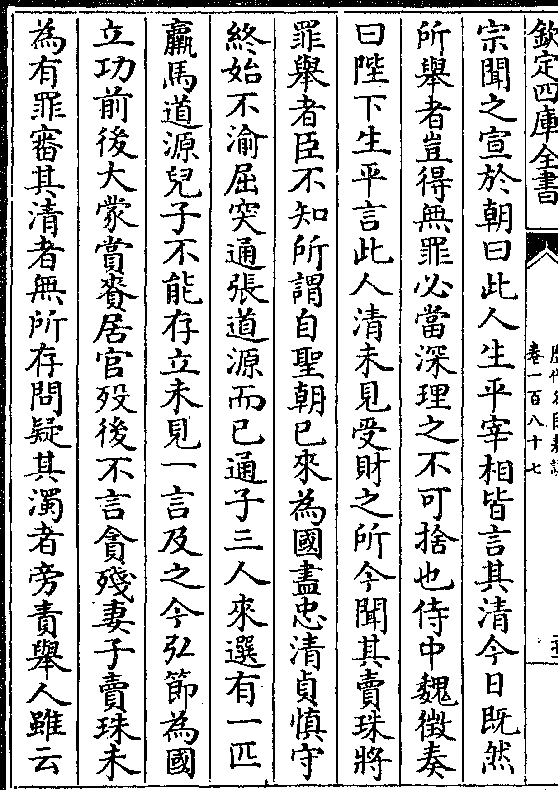 欽定四庫全書
卷一百八十七
宗聞之宣於朝曰此人生平宰相皆言其清今日既然
所舉者豈得無罪必當深理之不可捨也侍中魏徴奏
曰陛下生平言此人清未見受財之所今聞其賣珠將
罪舉者臣不知所謂自聖朝已來為國盡忠清貞慎守
終始不渝屈突通張道源而已通子三人來選有一匹
羸馬道源兒子不能存立未見一言及之今弘節為國
立功前後大蒙賞賚居官歿後不言貪殘妻子賣珠未
為有罪審其清者無所存問疑其濁者旁責舉人雖云